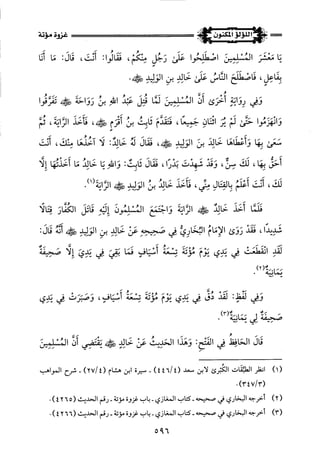 اللؤلؤ المكنون
غزوة مؤتة
يَا مَعْشَرَ الْمُسْلِمِينَ اصْطَلِحُوا عَلَى رَجُلٍ مِنْكُمْ، فَقَالُوا: أَنْتَ، قَالَ: مَا أَنَا
بِفَاعِلٍ، فَاصْطَلَحَ النَّاسُ عَلَى خَالِدِ بنِ الْوَلِيدِ ﷺ.
وَفِي رِوَايَةٍ أُخْرَى أَنَّ الْمُسْلِمِينَ لَمَّا قُتِلَ عَبْدُ اللهِ بنُ رَوَاحَةَ تَفَرَّقُوا
وَانْهَزَمُوا حَتَّى لَمْ يُرَ اثْنَانِ جَمِيعًا، فَتَقَدَّمَ ثَابِتُ بنُ أَقْرَمَ، فَأَخَذَ الرَّايَةَ، ثُمَّ
سَعَى بِهَا وَأَعْطَاهَا خَالِدَ بنَ الْوَلِيدِ، فَقَالَ لَهُ خَالِدٌ: لَا آخُذُهَا مِنْكَ، أَنْتَ
أَحَقُّ بِهَا، لَكَ سِنٌّ، وَقَدْ شَهِدْتَ بَدْرًا، فَقَالَ ثَابِتٌ: وَاللهِ يَا خَالِدُ مَا أَخَذْتُهَا إِلَّا
لَكَ، أَنْتَ أَعْلَمُ بِالْقِتَالِ مِنِّي، فَأَخَذَ خَالِدُ بنُ الْوَلِيدِ الرَّايَةَ(١).
فَلَمَّا أَخَذَ خَالِدٌ الرَّايَةَ وَاجْتَمَعَ الْمُسْلِمُونَ إِلَيْهِ قَاتَلَ الْكُفَّارَ قِتَالًا
شَدِيدًا، فَقَدْ رَوَى الْإِمَامُ الْبُخَارِيُّ فِي صَحِيحِهِ عَنْ خَالِدِ بنِ الْوَلِيدِ أَنَّهُ قَالَ:
لَقَدِ انْقَطَعَتْ فِي يَدِي يَوْمَ مُؤْتَةَ تِسْعَةُ أَسْيَافٍ فَمَا بَقِيَ فِي يَدِي إِلَّا صَحِيفَةٌ
يَمَانِيَةٌ(٢).
وَفِي لَفْظٍ: لَقَدْ دُقَّ فِي يَدِي يَوْمَ مُؤْتَةَ تِسْعَةُ أَسْيَافٍ، وَصَبَرَتْ فِي يَدِي
صَحِيفَةٌ لِي يَمَانِيَةٌ(٣).
قَالَ الْحَافِظُ فِي الْفَتْحِ: وَهَذَا الْحَدِيثُ عَنْ خَالِدٍ يَقْتَضِي أَنَّ الْمُسْلِمِينَ
(١) انظر الطبقات الكبرى لابن سعد (٤٤٦/٤) ـ سيرة ابن هشام (٢٧/٤) ـ شرح المواهب
(٣٤٧/٣).
(٢) أخرجه البخاري في صحيحه ـ كتاب المغازي ـ باب غزوة مؤتة ـ رقم الحديث (٤٢٦٥).
(٣) أخرجه البخاري في صحيحه ـ كتاب المغازي ـ باب غزوة مؤتة ـ رقم الحديث (٤٢٦٦).
٥٩٦